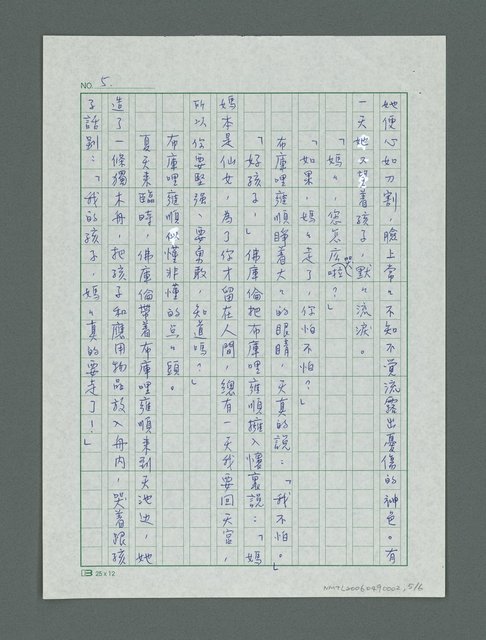 NO. 5.
她便心如刀割，臉上常々不知不覺流露出憂傷的神色。有
一天她又望著孩子默々流淚。
「媽々，您怎麼哭啦？」
「如果，媽々走了，你怕不怕？」
布庫哩雍順睜著大々的眼睛，天真的說：「我不怕。」
「好孩子，」佛庫倫把布庫哩雍順擁入懷裏說：「媽
媽本是仙女，為了你才留在人間，總有一天我要回天宮，
所以你要堅强、要勇敢，知道嗎？」
布庫哩雍順似懂非懂的点々頭。
夏天來臨時，佛庫倫帶着布庫哩雍順來到天池边，她
造了一條獨木舟，把孩子和應用物品放入舟内，哭着跟孩
子話别：「我的孩子，媽々真的要走了！」
25 x 12
NMTL20060490002, 5/6